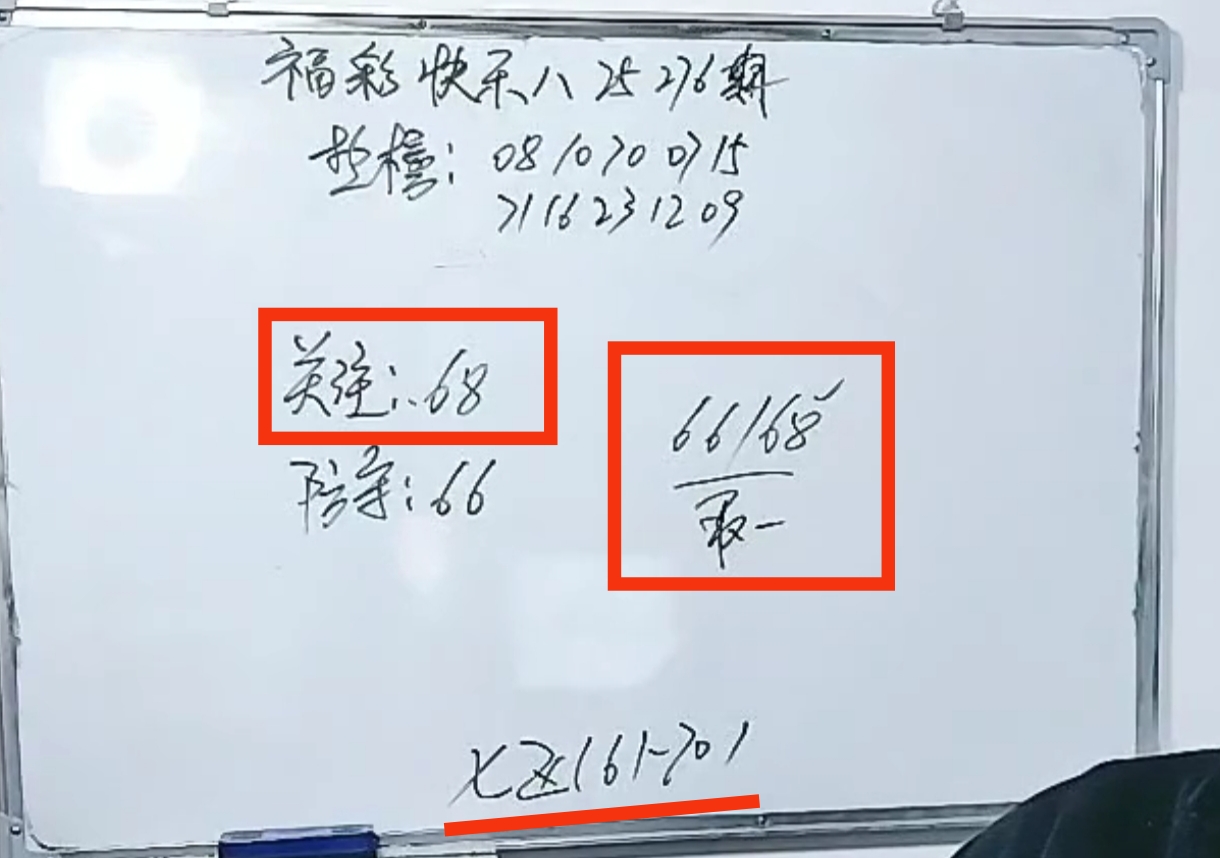 福彩快乐八25276期
垫档：08 10 70 07 15
71 16 23 12 09
关注：68
防守：66
66/68✓
取一
七区(61-70)